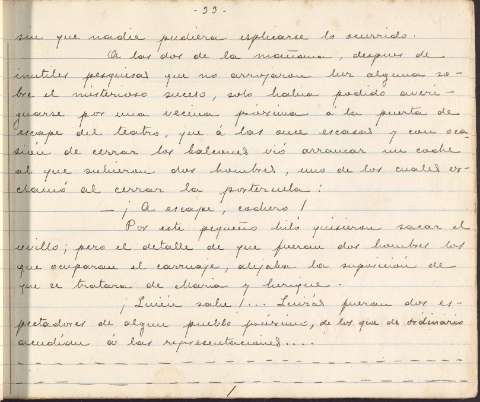 -33-
sin que nadie pudiera esplicarse lo ocurrido.
A las dos de la mañana, despues de
inutiles pesquisas que no arrojaron luz alguna so-
bre el misterioso suceso, solo habia podido averi-
guarse por una vecina próxima á la puerta de
escape del teatro, que á las once escasas y con oca-
sión de cerrar los balcones vió arrancar un coche
al que subieron dos hombres, uno de los cuales es-
clamó al cerrar la portezuela:
—¡A escape, cochero!
Por este pequeño hilo quisieron sacar el
ovillo; pero el detalle de que fueran dos hombres los
que ocuparan el carruaje, alejaba la suposición de
que se tratara de Maria y Enrique.
¡Quién sabe!... Quizás fueran dos es-
pectadores de algun pueblo próximo, de los que de ordinario
acudian á las representaciones....